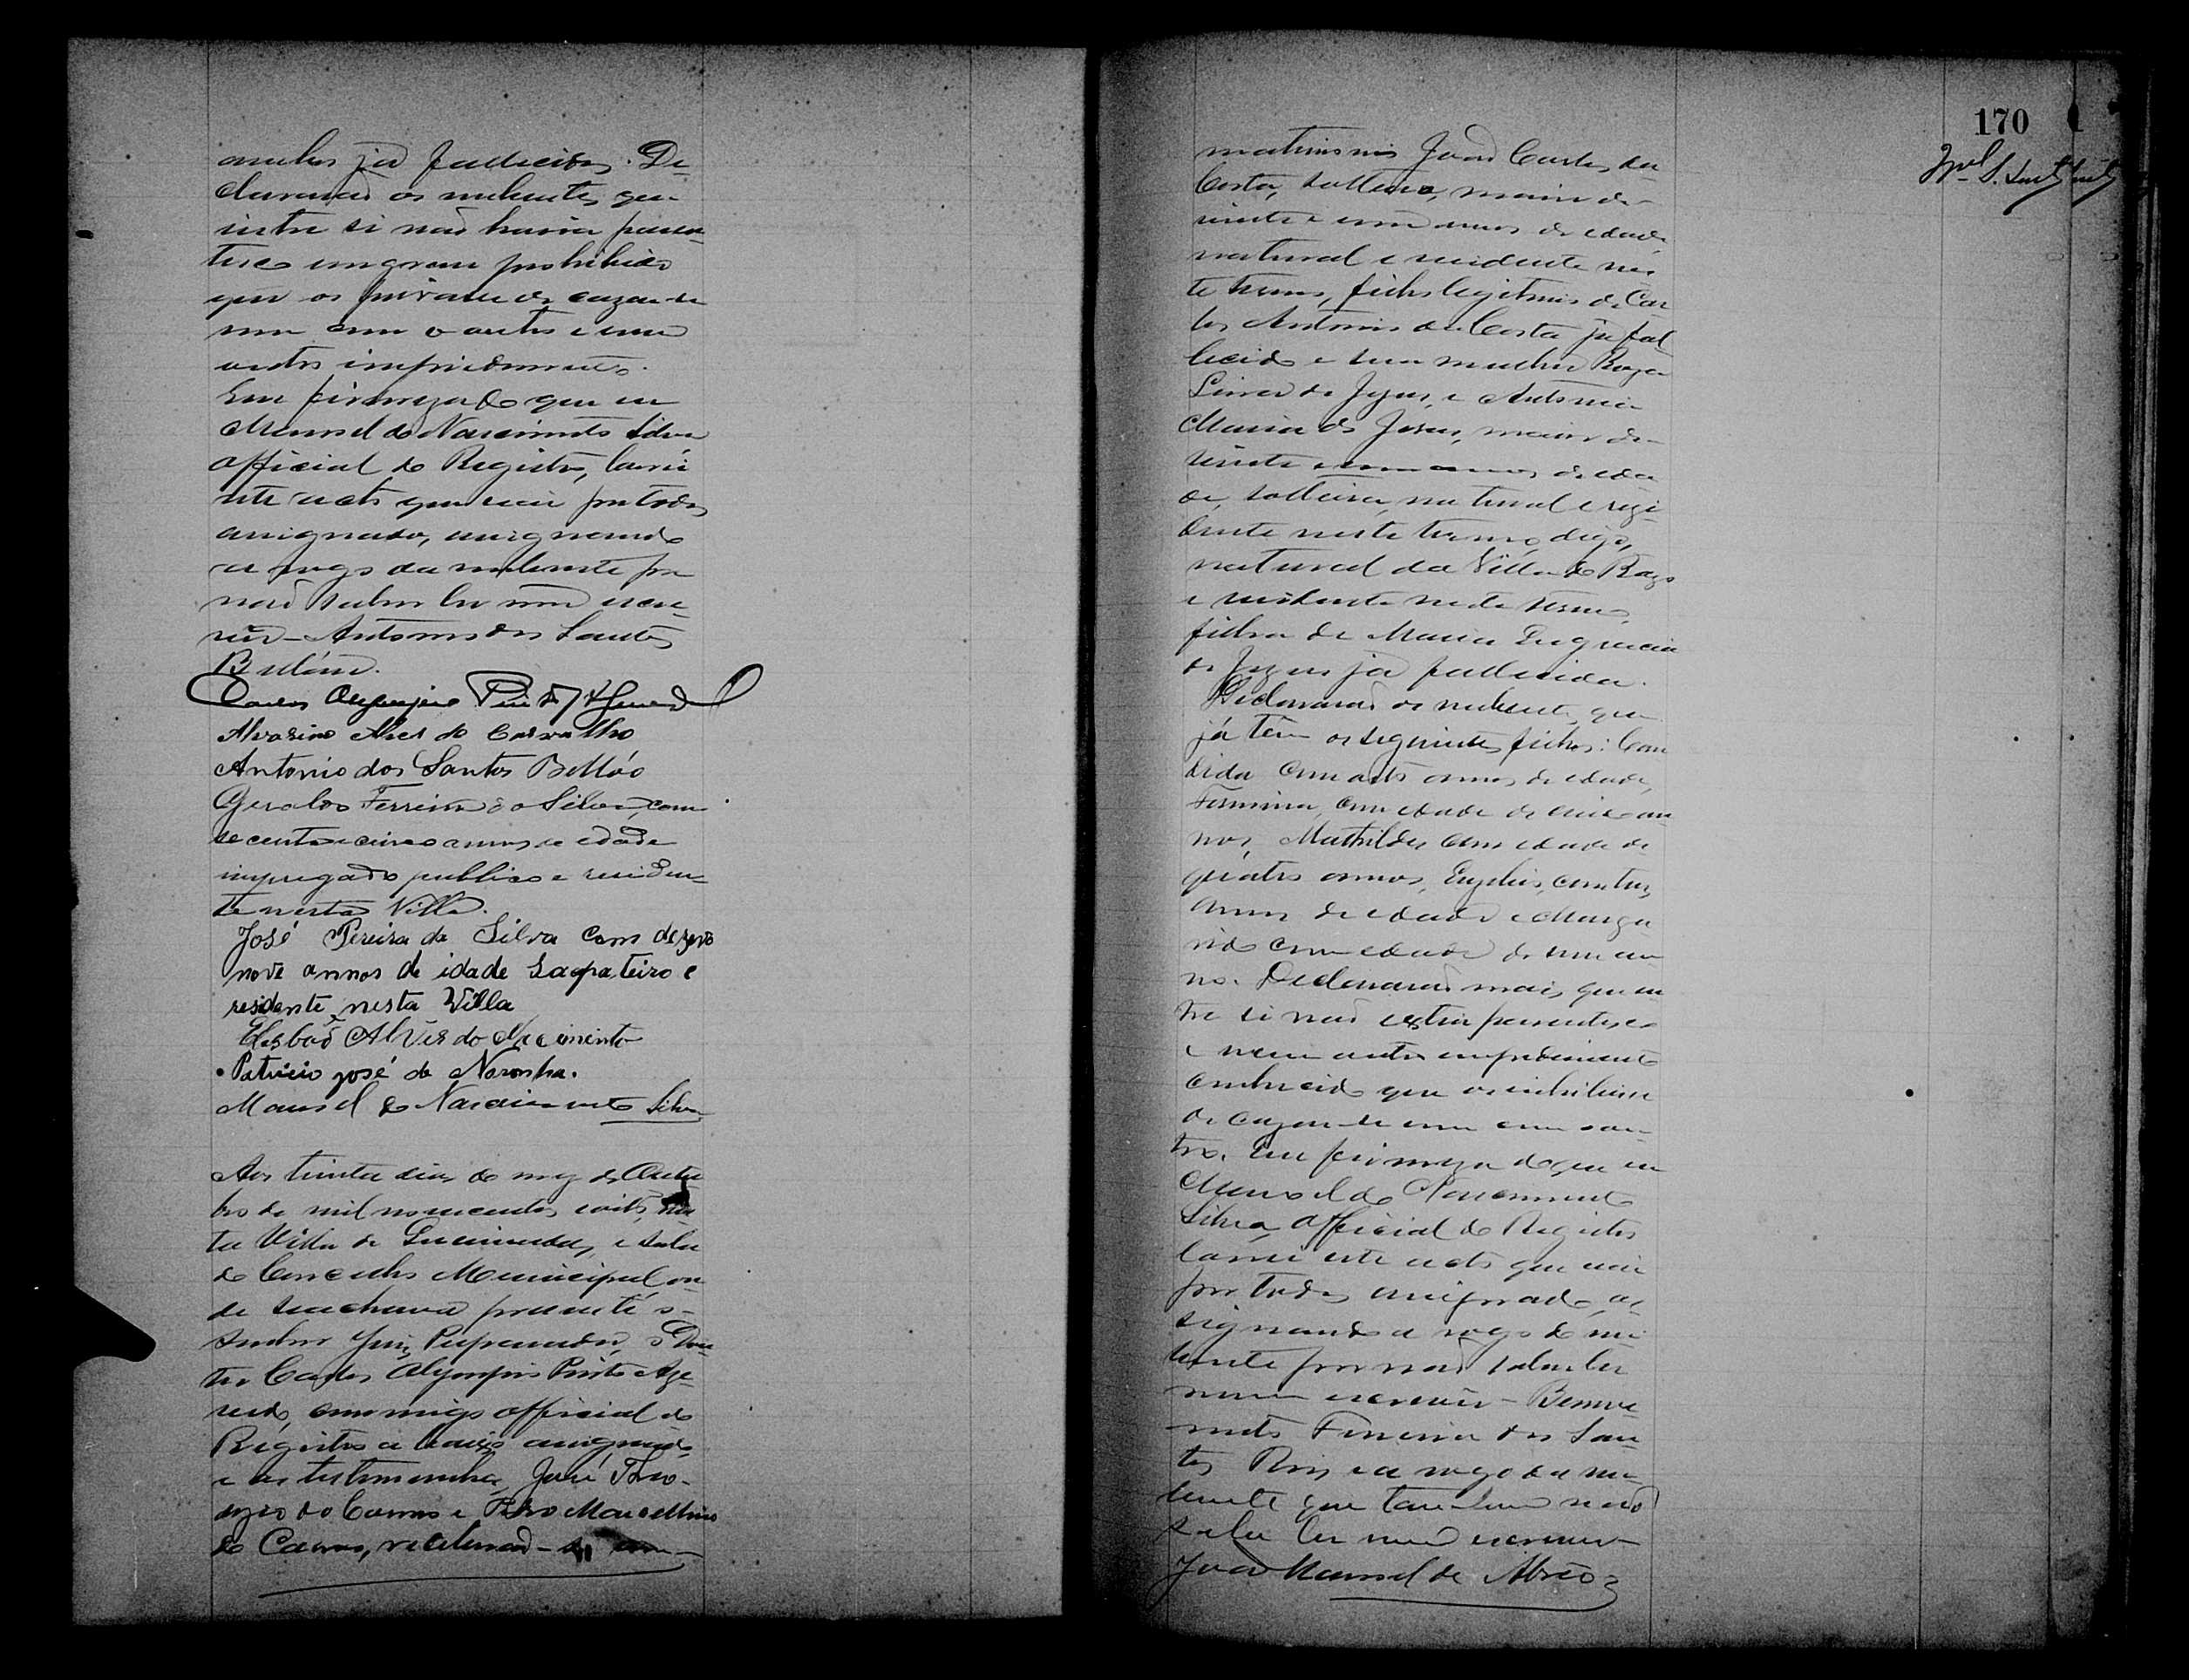 ambos já fallecidos. De-
clararaõ os nubentes que
entre si naõ havia paren-
tesco em grau prohibido
que os privasse de cazar-se
um com o outro e nem
outro impedimento.
Em firmeza do que eu
Manoel do Nascimento Silva
official do Registro, lavrei
este acto que vai por todos
assignado, assignando
a rogo da nubente por
naõ saber ler nem escre-
ver - Antonio dos Santos
Bellóno.
Carlos Olympio Pinto Azeredo
Alvarino Alves de Carvalho
Antonio dos Santos Bellóo
Geraldo Ferreira da Silva, com
secenta e cinco annos de edade
impregado publico e residen-
te nesta Villa.
José Pereira da Silva com dezeno
nove annos de idade Sapateiro e
residente nesta Villa
Elesbaõ Alves do Nacimento
Patricio José de Noronha.
Manoel do Nascimento Silva
Aos trinta dias do mez de Outu-
bro de mil novecentos e oito, nes-
ta Villa de e sala
do Concelho Municipal on-
de se achava presente o
senhor Juiz Preparador, o Dou-
tor Carlos Olympio Pinto Aze-
redo, commigo official do
Registro a baixo assignado
e as testemunhas José Theo-
do Carmo e Pedro Marcellino
do Carmo, receberaõ-se em
170
matrimonio Joaõ Carlos da
Costa, solteiro, maior de
vinte e um annos de edade
natural e residente nes-
te termo, filho legitimo de Car-
los Antonio da Costa já fal-
lecido e sua mulher Roza
de Jezus, e Antonia
Maria de Jesus, maior de
vinte e um annos de eda-
de, solteira, natural e rezi-
dente neste termo, digo,
natural da Villa do
e residente neste termo,
filha de Maria Engracia
de Jezus já fallecida.
Declararaõ os nubentes que
já têm os seguintes filhos: Can-
dida com oito annos de edade,
Firmina, com edade de cinco an-
nos, Mathildes com edade de
quatro annos, com tres
annos de edade e Marga-
rida com edade de um an-
no. Declararaõ mais que en-
tre si naõ existia parentesco
e nem outro impedimento
conhecido que os inhibisse
de cazar-se um com o ou-
tro. Em firmeza do que eu
Manoel do Nascimento
Silva official do Registro
lavrei este acto que vai
por todos assignado, as-
signando a rogo do nu-
bente por naõ saber ler
nem escrever - Benve-
nuto Ferreira dos San-
tos Reis e a rogo da nu-
bente que tambem naõ
sabe ler nem escrever
Joaõ Manoel de Abreo